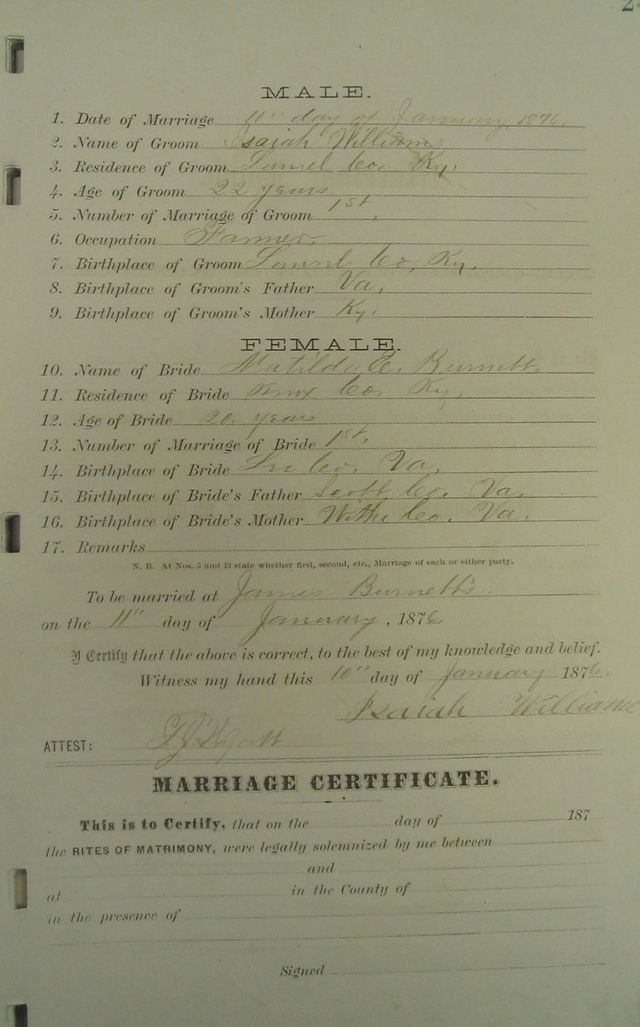 2
MALE.
1. Date of Marriage 11th day of January, 1876.
2. Name of Groom Isaiah Williams
3. Residence of Groom Laurel Co. Ky.
4. Age of Groom 22 years
5. Number of Marriage of Groom 1st.
6. Occupation Farmer.
7. Birthplace of Groom Laurel Co, Ky.
8. Birthplace of Groom's Father Va,
9. Birthplace of Groom's Mother Ky.
FEMALE.
10. Name of Bride Matilda E. Burnett
11. Residence of Bride Knox Co. Ky,
12. Age of Bride 20. years
13. Number of Marriage of Bride 1st.
14. Birthplace of Bride Lee Co. Va,
15. Birthplace of Bride's Father Scott Co. Va,
16. Birthplace of Bride's Mother Wythe Co. Va.
17. Remarks
N. B. At Nos. 5 and 13 state whether first, second, etc., Marriage of each or either party.
To be married at James Burnett's
on the 11th day of January, 1876
I Certify that the above is correct, to the best of my knowledge and belief.
Witness my hand this 10th day of January 1876.
Isaiah Williams
ATTEST:
MARRIAGE CERTIFICATE.
This is to Certify, that on the day of 187
the RITES OF MATRIMONY, were legally solemnized by me between
and
at in the County of
in the presence of
Signed